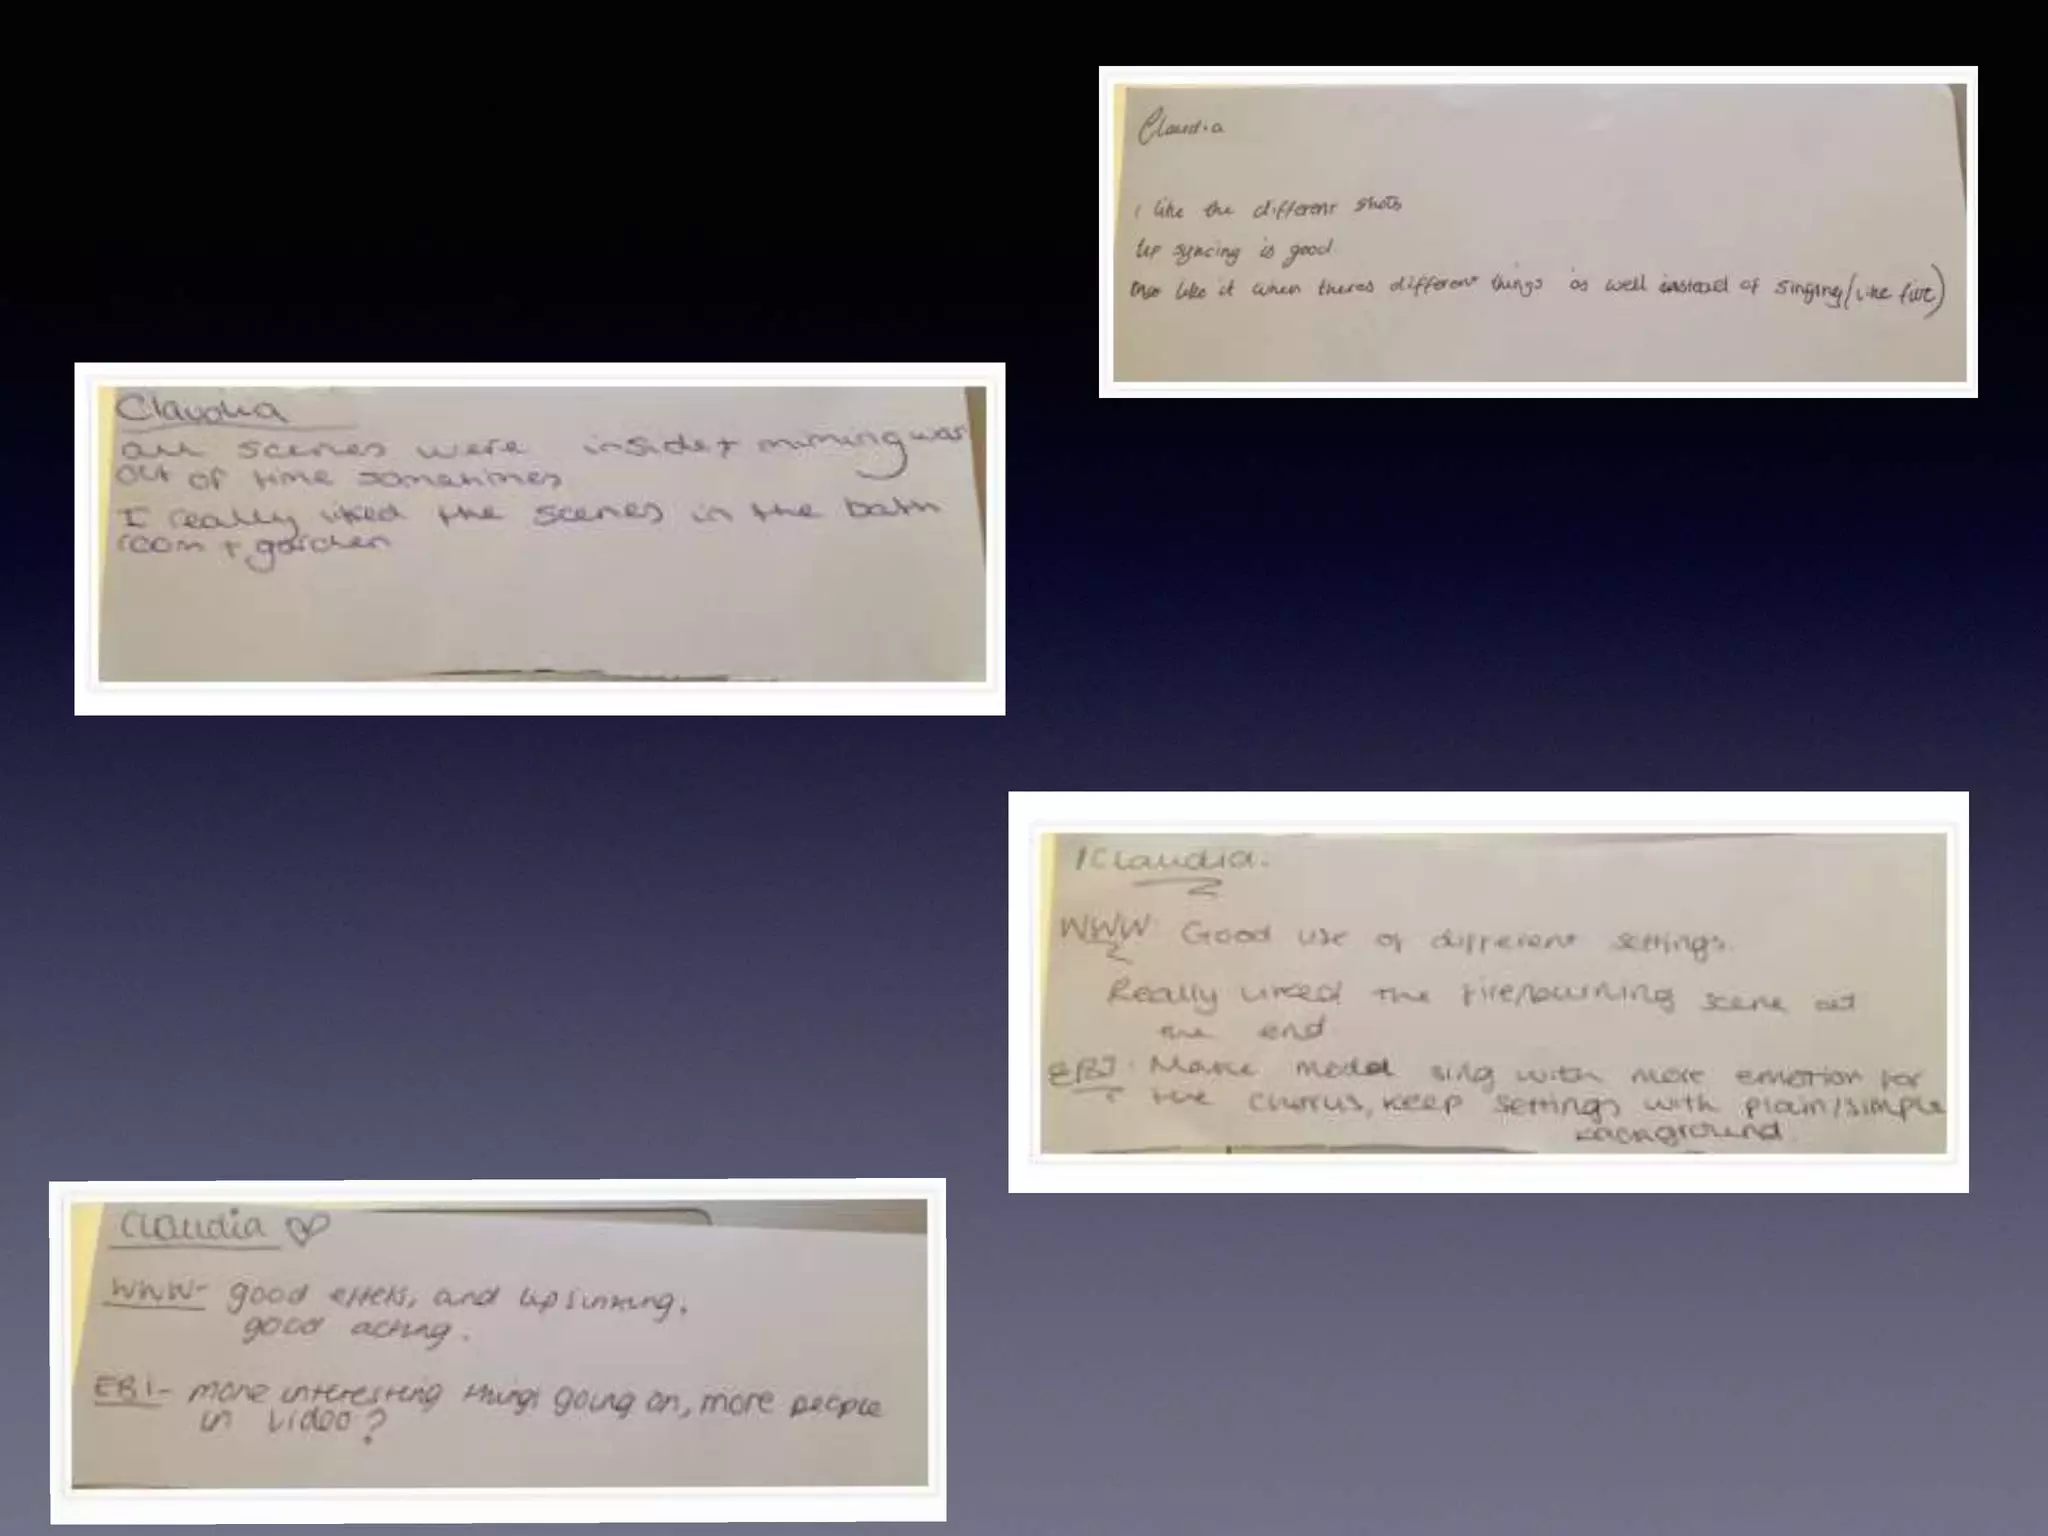 Claudia
I like the different shots
Lip syncing is good
like it when theres different things as well instead of singing (like fire)
Claudia
all scenes were inside + miming was
out of time sometimes
I really liked the scenes in the bath
room + garden
Claudia.
WWW: Good use of different settings.
Really liked the fire/burning scene at
the end
EBI: Make model sing with more emotion for
the chorus, keep settings with plain/simple
background
Claudia
WWW- good effets, and lip sinking.
good acting.
EBI- more interesting things going on, more people
in video?